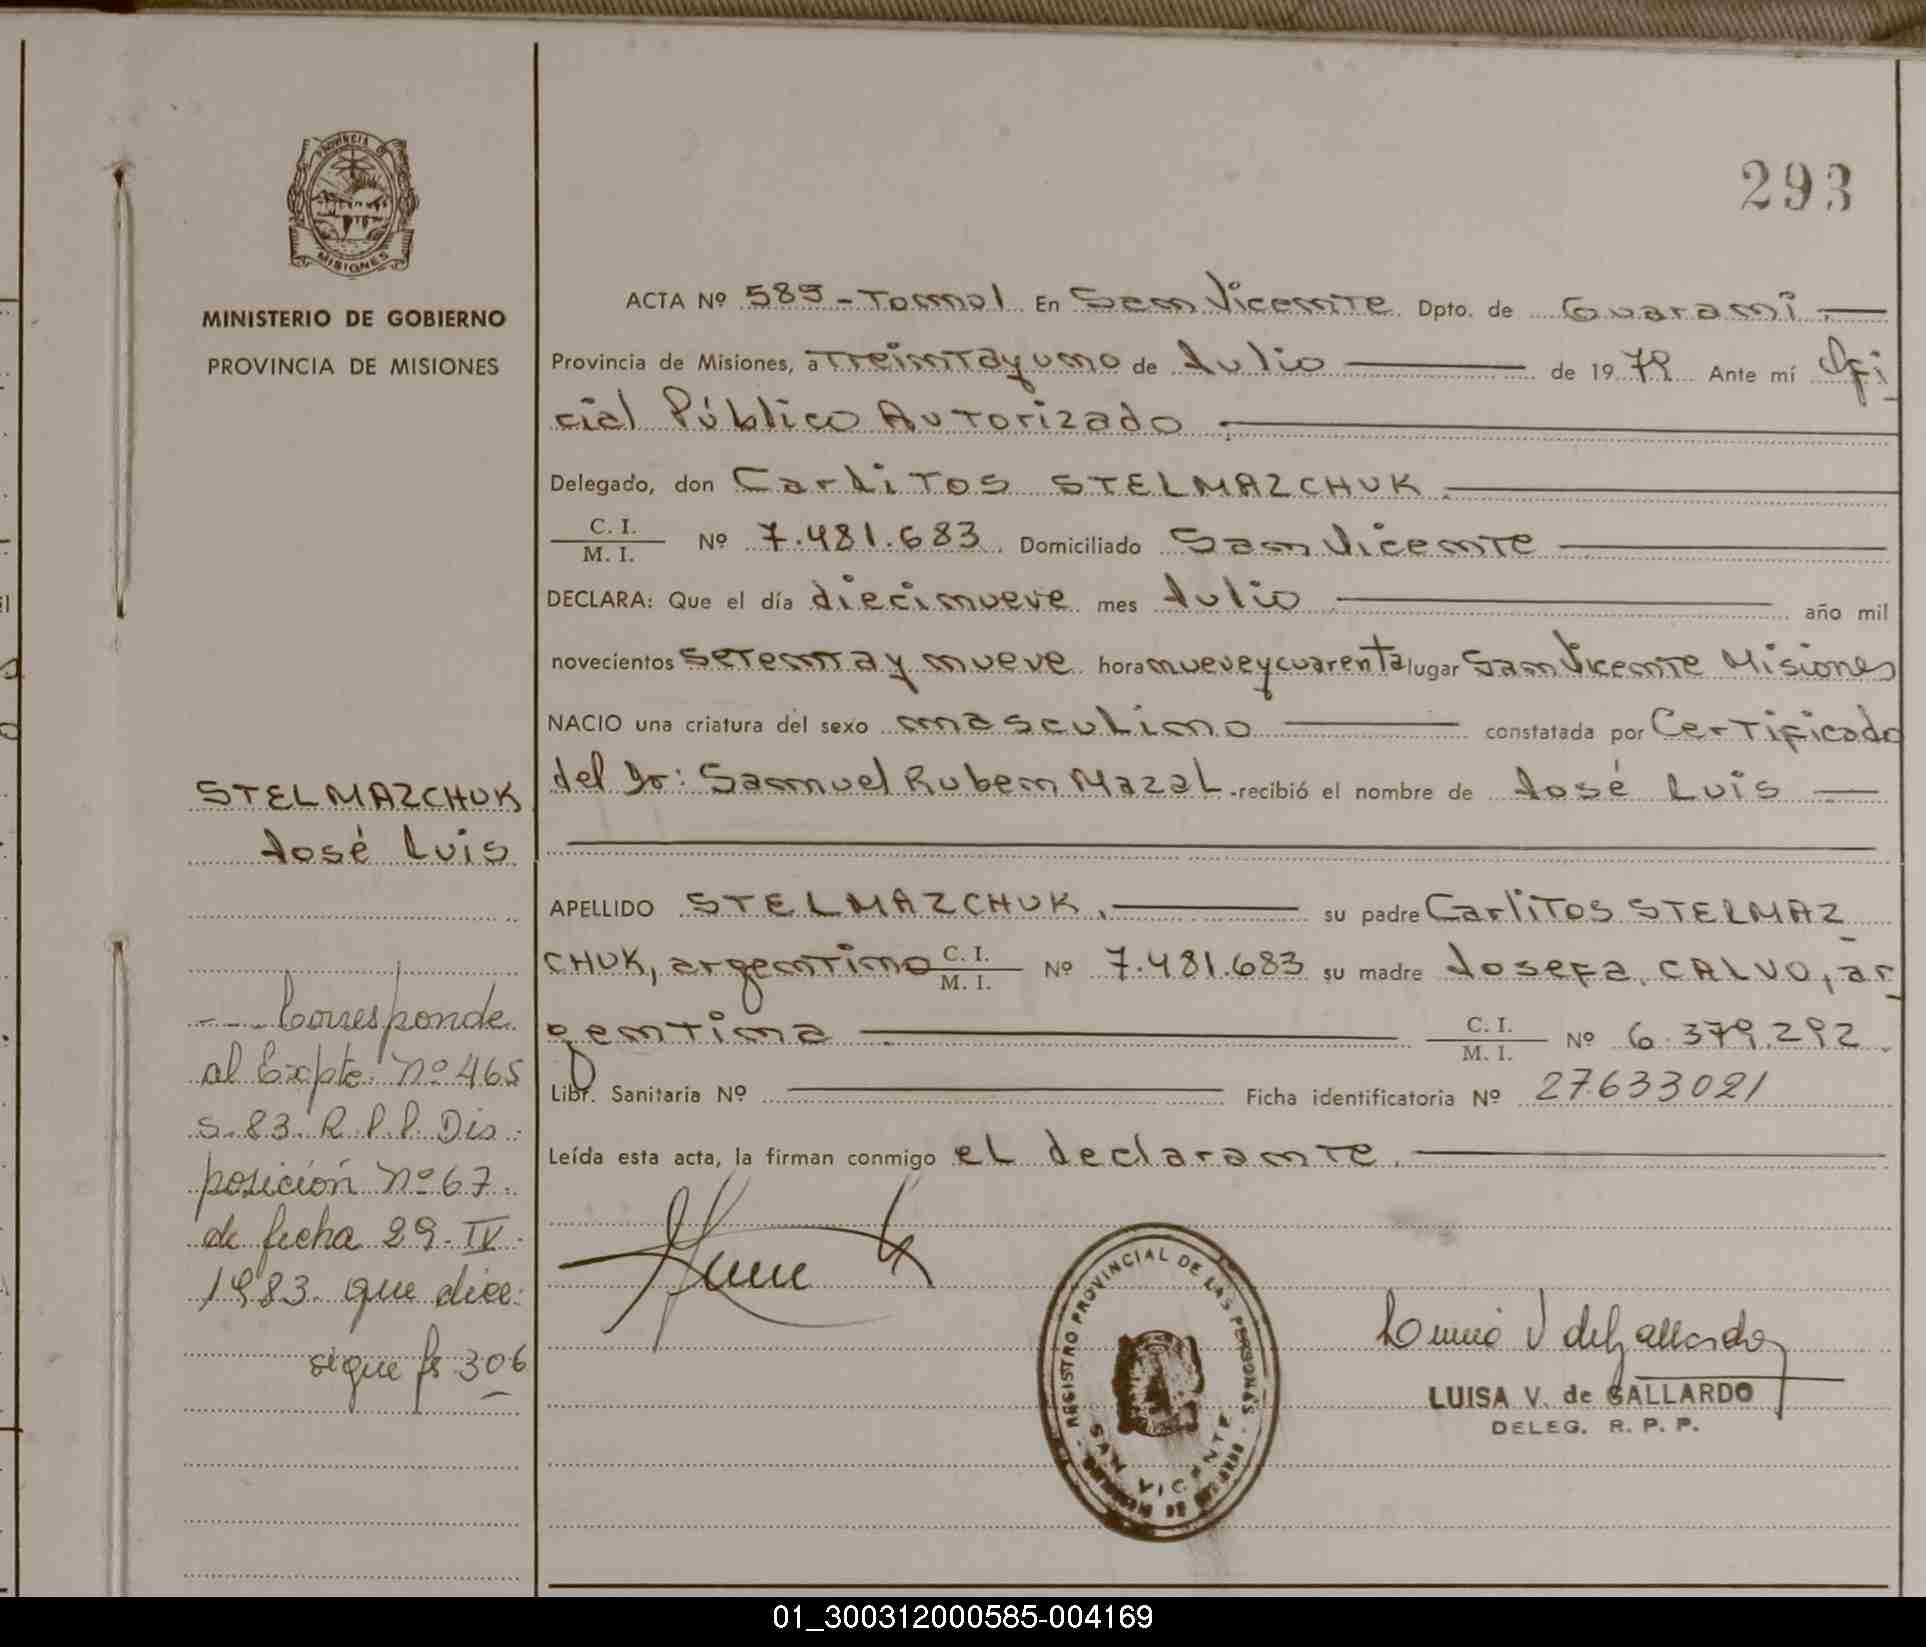 293
PROVINCIA DE
MISIONES
MINISTERIO DE GOBIERNO
PROVINCIA DE MISIONES
ACTA Nº 585 - Tomo I En San Vicente Dpto. de Guaraní.
Provincia de Misiones, a Treintayuno de Julio de 1979 Ante mí Ofi
cial Público Autorizado
Delegado, don Carlitos STELMAZCHUK
C. I.
M. I. Nº 7.481.683. Domiciliado San Vicente
DECLARA: Que el día diecinueve mes Julio año mil
novecientos setentay nueve hora nueveycuarenta lugar San Vicente Misiones
NACIO una criatura del sexo masculino constatada por Certificado
del Dr: Samuel Ruben Mazal. recibió el nombre de José Luis
STELMAZCHUK
José Luis
APELLIDO STELMAZCHUK. su padre Carlitos STELMAZ
CHUK, argentino C. I.
M. I. Nº 7.481.683 su madre Josefa CALVO, ar
gentina C. I.
M. I. Nº 6.379.292.
Libr. Sanitaria Nº Ficha identificatoria Nº 27633021
Leída esta acta, la firman conmigo el declarante.
--- Corresponde
al Expte. Nº 465
S. 83. R.P.P. Dis
posición Nº 67.
de fecha 29-IV
1983. que dice:
sigue fs 306
REGISTRO PROVINCIAL DE LAS PERSONAS
SAN VICENTE
LUISA V. de GALLARDO
DELEG. R. P. P.
01_300312000585-004169